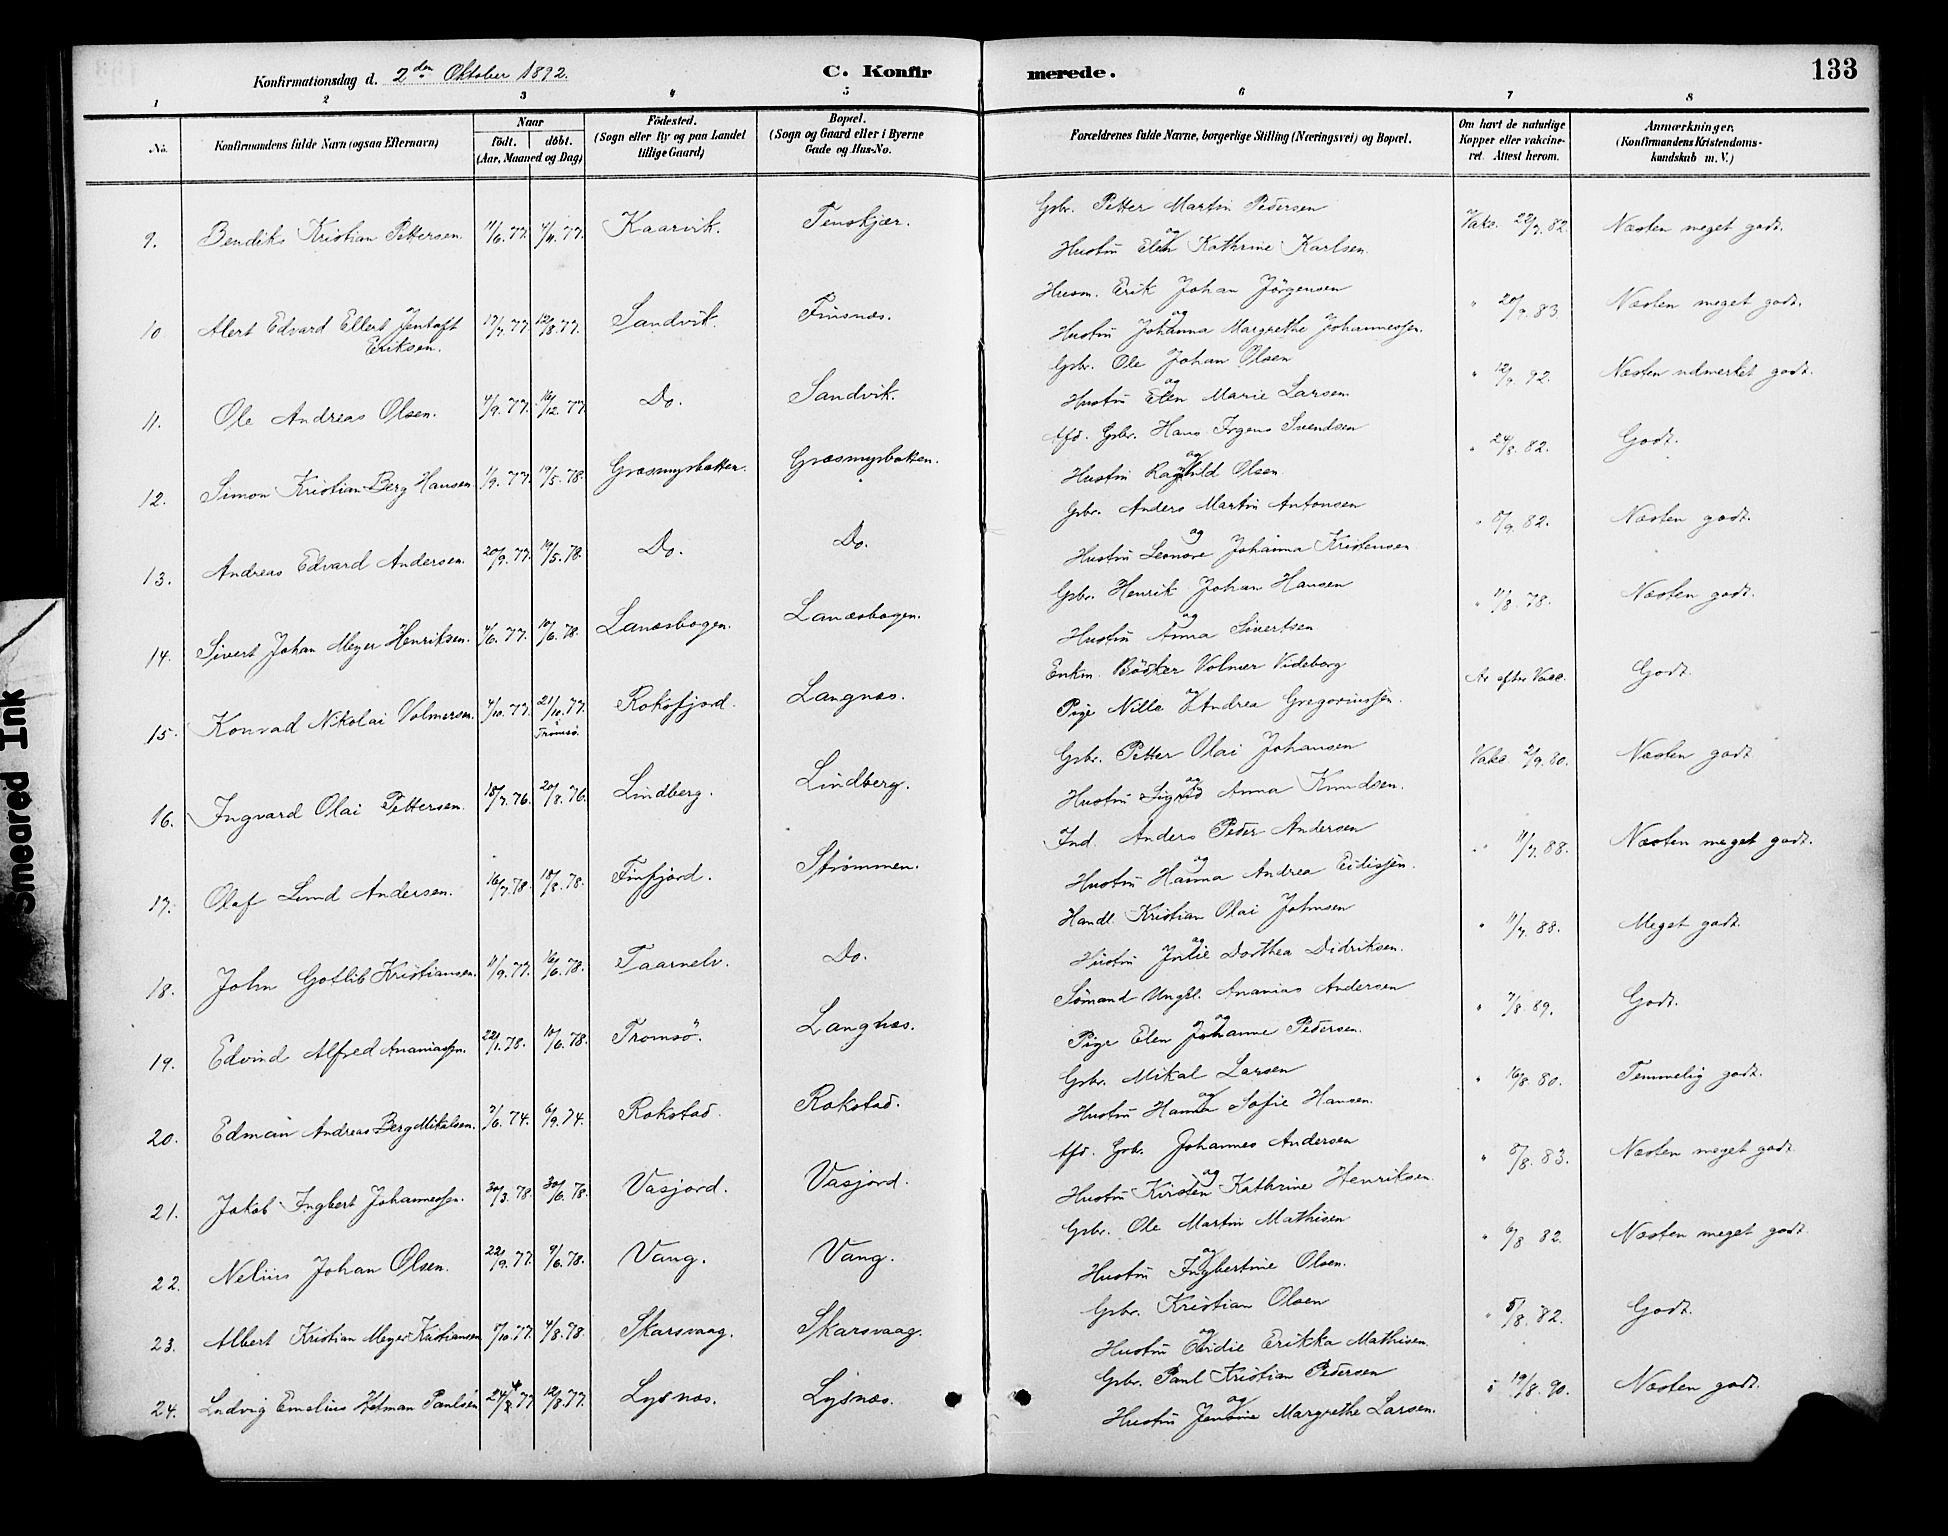 Konfirmationsdag d. 2den Oktober 1892. C. Konfirmerede. 133
1 2 3 4 5 6 7 8
No. Konfirmandens fulde Navn (ogsaa Efternavn) Naar født. døbt. (Aar, Maaned og Dag) Fødested. (Sogn eller By og paa Landet tillige Gaard) Bopæl. (Sogn og Gaard eller i Byerne Gade og Hus-No.) Forældrenes fulde Navne, borgerlige Stilling (Næringsvei) og Bopæl. Om havt de naturlige Kopper eller vakcineret. Attest herom. Anmærkninger. (Konfirmandens Kristendomskundskab m. V.)
9. Bendiks Kristian Pettersen. 11/6.77. 4/11.77. Kaarvik. Tenskjær. Gbr. Petter Martin Pedersen og Hustru Elen Kathrine Karlsen. Vakc. 22/7.82. Næsten meget godt.
10 Alert Edvard Ellert Jentoft Eriksen. 17/7.77. 12/8.77. Sandvik. Finsnæs. Husm. Erik Johan Jörgensen og Hustru Johanna Margrethe Johannessen. " 20/9.83 Næsten meget godt.
11. Ole Andreas Olsen. 4/9.77. 16/12.77. Do. Sandvik. Gbr. Ole Johan Olsen og Hustru Elen Marie Larsen. " 12/9.92. Næsten udmerket godt.
12. Simon Kristian Berg Hansen 1/9.77. 19/5.78. Græsmyrbakken. Græsmyrbakken. Afd. Gbr. Hans Jrgens Svendsen og Hustru Ragnhild Olsen. " 24/8.82. Godt.
13. Andreas Edvard Andersen. 20/9.77. 19/5.78. Do. Do. Gbr. Anders Martin Antonsen og Hustru Leonore Johanna Kristensen " 5/9.82. Næsten godt.
14. Sivert Johan Meyer Henriksen. 4/6.77. 10/6.78. Lanæsbogen. Lanæsbogen. Gbr. Henrik Johan Hansen og Hustru Anna Sivertsen " 11/8.78. Næsten godt.
15. Konrad Nikolai Volmersen. 4/10.77. 21/10.77. i Tromsø. Roksfjord. Langnæs. Enkm. Bödker Volmer Videborg og Pige Nille Andrea Gregoriussen. Ar efter Vakc. Godt.
16. Ingvard Olai Pettersen. 18/7.76. 20/8.76. Lindberg. Lindberg. Gbr. Petter Olai Johansen og Hustru Sigrid Anna Knudsen. Vakc. 2/9.80. Næsten godt
17. Olaf Lund Andersen. 16/7.78. 18/8.78. Finfjord. Strømmen. Ind. Anders Peder Andersen og Hustru Hanna Andrea Eidissen. " 11/7.88. Næsten meget godt.
18. John Gotlib Kristiansen. 11/9.77. 16/6.78. Taarnelv. Do. Handl. Kristian Olai Johnsen og Hustru Julie Dorthea Didriksen. " 11/7.88. Meget godt.
19. Edvind Alfred Ananiassen. 22/1.78. 10/6.78. Tromsö. Langnæs. Sømand Ungkl. Ananias Andersen og Pige Elen Johanne Pedersen. " 7/8.89. Godt.
20. Edmain Andreas Berg Mikalsen. 7/6.74. 6/9.74. Rokstad. Rokstad. Gbr. Mikal Larsen og Hustru Hanna Sofie Hansen. " 16/8.80. Temmelig godt.
21. Jakob Ingbert Johannessen. 30/3.78. 30/6.78. Vasjord. Vasjord. Afd. Gbr. Johannes Andersen og Hustru Kirsten Kathrine Henriksen. " 5/8.83. Næsten meget godt
22. Nelius Johan Olsen. 22/9.77. 9/6.78. Vang. Vang. Gbr. Ole Martin Mathisen og Hustru Ingbertine Olsen. " 6/8 82. Næsten meget godt.
23. Albert Kristian Meyer Kristiansen 7/10.77. 4/8.78. Skarsvaag. Skarsvaag. Gbr. Kristian Olsen og Hustru Erikka Mathisen. " 5/8.82. Godt.
24. Ludvig Emelius Hetman Paulsen 24/4 77 12/8.77. Lysnæs. Lysnæs. Gbr. Paul Kristian Pedersen og Hustru Jensine Margrethe Larsen. " 19/8.90. Næsten godt.
Smeared Ink